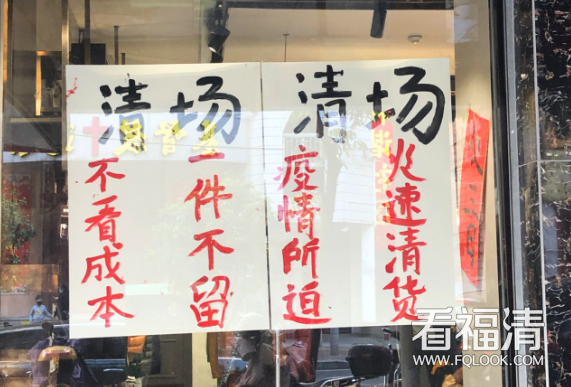 清场
不看成本
一件不留
清场
疫情所迫
火速清货
看福清
WWW.FQLOOK.COM